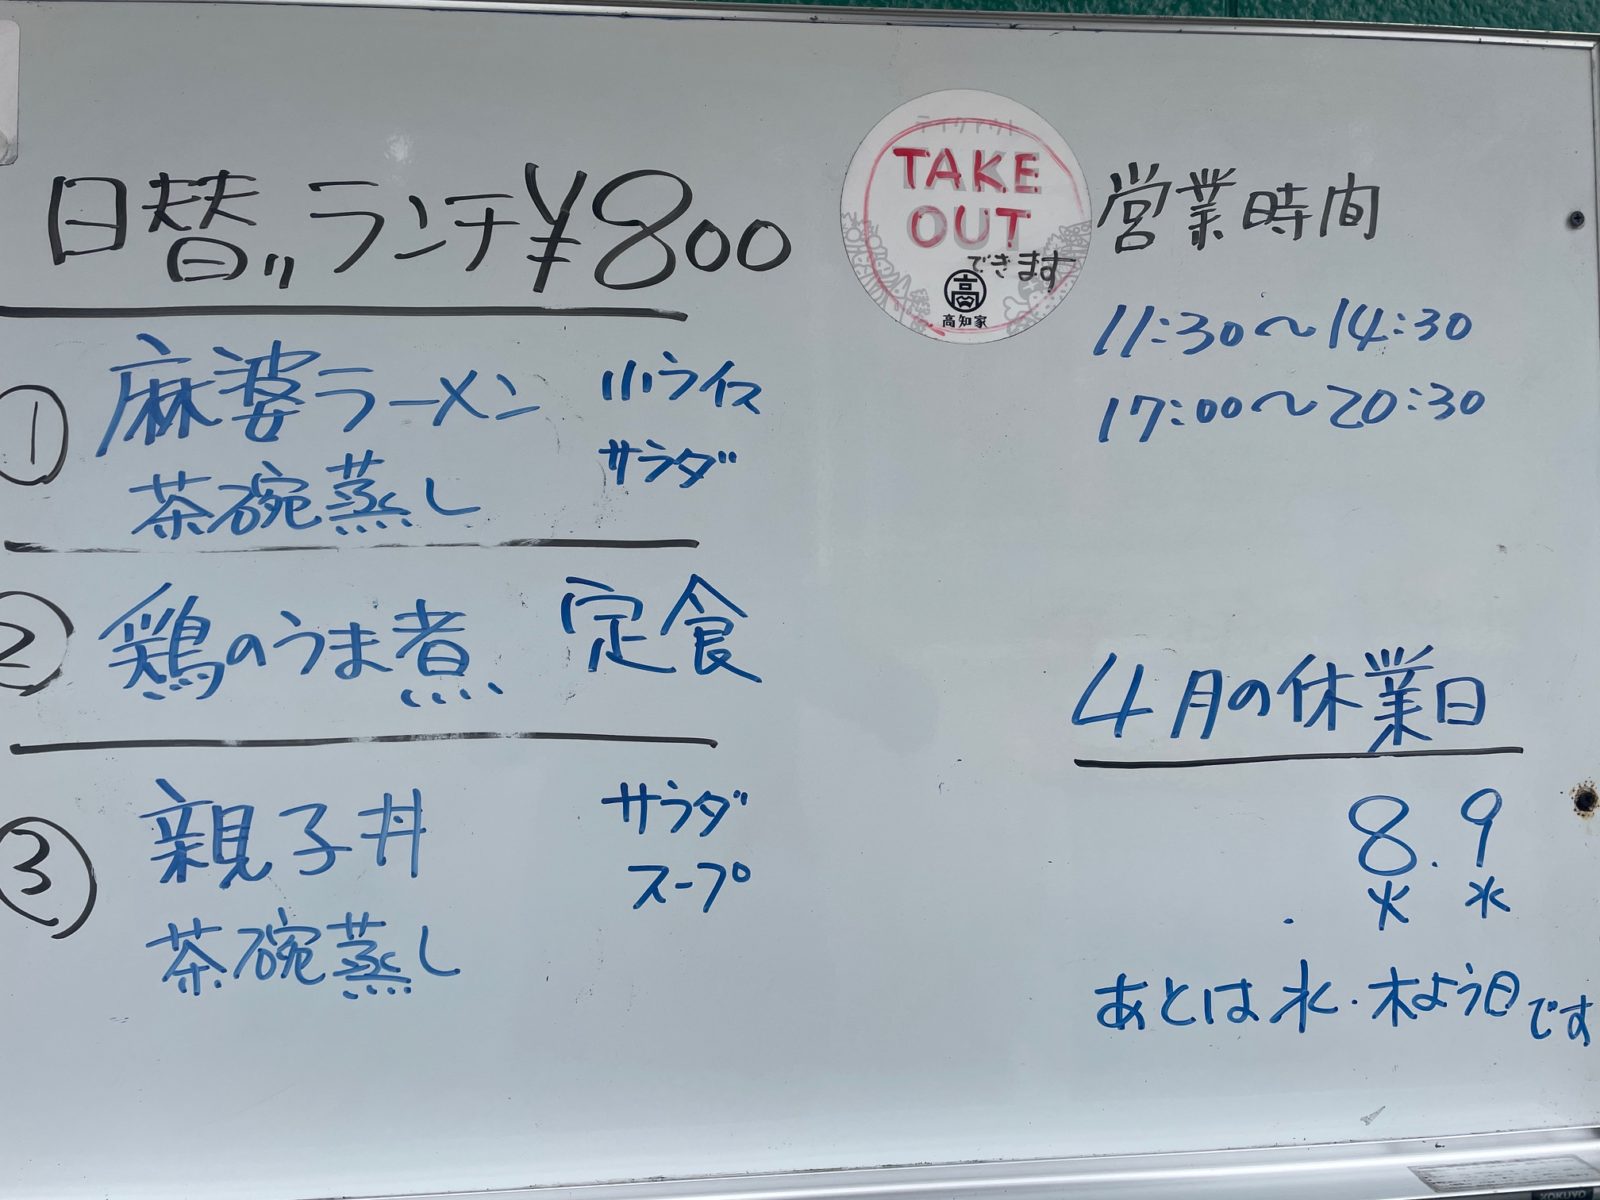 日替〃ランチ¥800
① 麻婆ラーメン 小ライス
茶碗蒸し サラダ
② 鶏のうま煮 定食
③ 親子丼 サラダ
茶碗蒸し スープ
テイクアウト
TAKE
OUT
できます
高
高知家
営業時間
11:30〜14:30
17:00〜20:30
4月の休業日
8.9
火 水
あとは水・木よう日です
KOKUYO